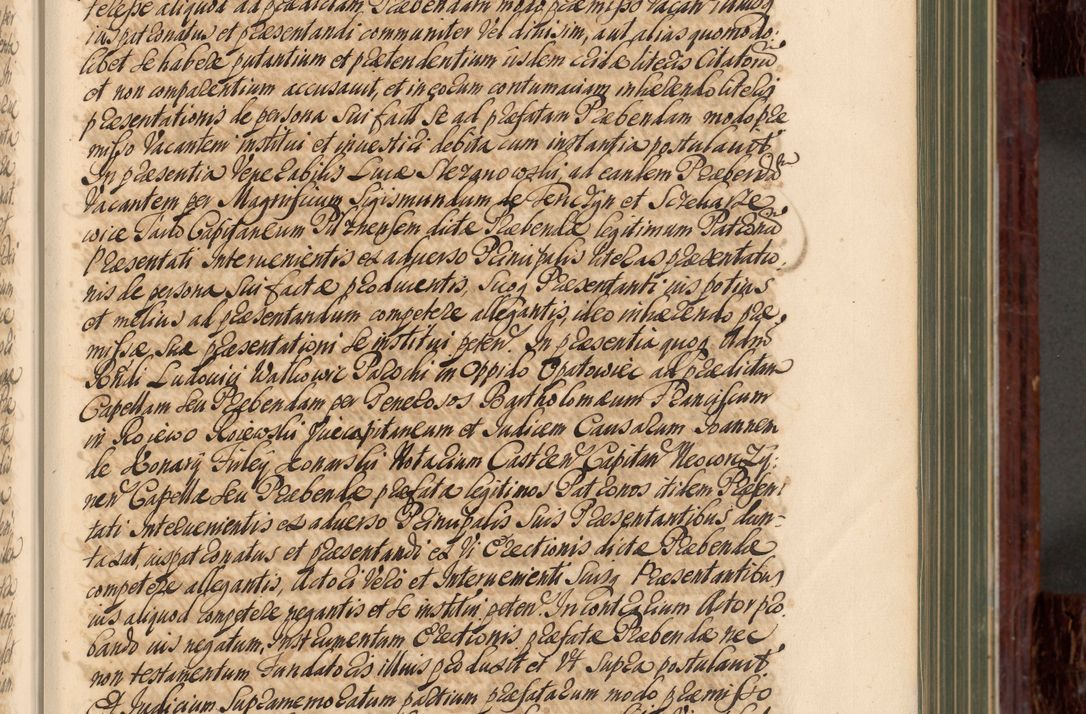 teresse aliquod ad praedictam Praebendam modo praemisso vacan
ius patronatus et praesentandi communiter vel divisim, aut alias quomodo,
libet se habere putantium et praetendentium iisdem literis
et non comparentium accusavit, et in eorum contumaciam inhaerendo literis
praesentationis de persona sui fact se ad praefatam Praebendam modo prae
misso Vacantem institui et investiri debita cum instantia postulavit
In praesentia Venerabilis Lucae Stezanowski, ad eandem Praebendã
Vacantem per Magnificum Sigismundum de Tenczyn et
wice Tarlo Capitaneum Pilznensem dictae Praebendae legitimum Patronũ
Praesentati Intervenientis ex adverso Principalis literas praesentatio,
nis de persona sui factae producentis, suoq Praesentanti ius potius
et melius ad praesentandum competere allegantis, ideo inhaerendo prae,
missae suae praesentationi se institui peten. In praesentia quoq Adm
Rndi Ludovici Walkowic Parochi in Oppido Opatowiec ad praedictam
Capellam seu Praebendam per Generosos Bartholomaeum Franciscum
in Rojewo Rojewski Vicecapitaneum et Iudicem Causarum Ioannem
de Konary Notarium Castren Capitan Neoconzy,
nen Capellae seu Praebendae praefatae legitimos Patronos itidem Praesen
tati Intervenientis ex adverso Principalis suis Praesentantibus dun,
taxat, iuspatronatus et praesentandi ex vi Erectionis dictae Praebendae
competere allegantis, Actori vero et Intervenienti suisq Praesentantibus
ius aliquod competere negantis et se institui peten. In contrarium Actor pro
bando ius negatum, Instrumentum Erectionis praefatae Praebendae nec
non testamentum Fundatoris illius produxit et Vt supra postulavit
Et Iudicium supramemoratum partium praefatarum modo praemisso